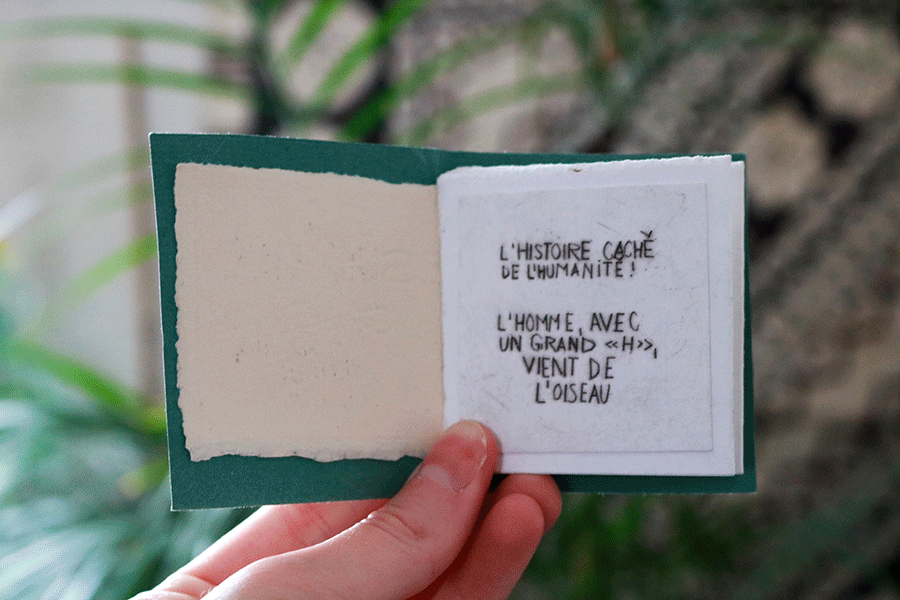 L'HISTOIRE CACHÉ
DE L'HUMANITÉ !
L'HOMME, AVEC
UN GRAND «H»,
VIENT DE
L'OISEAU